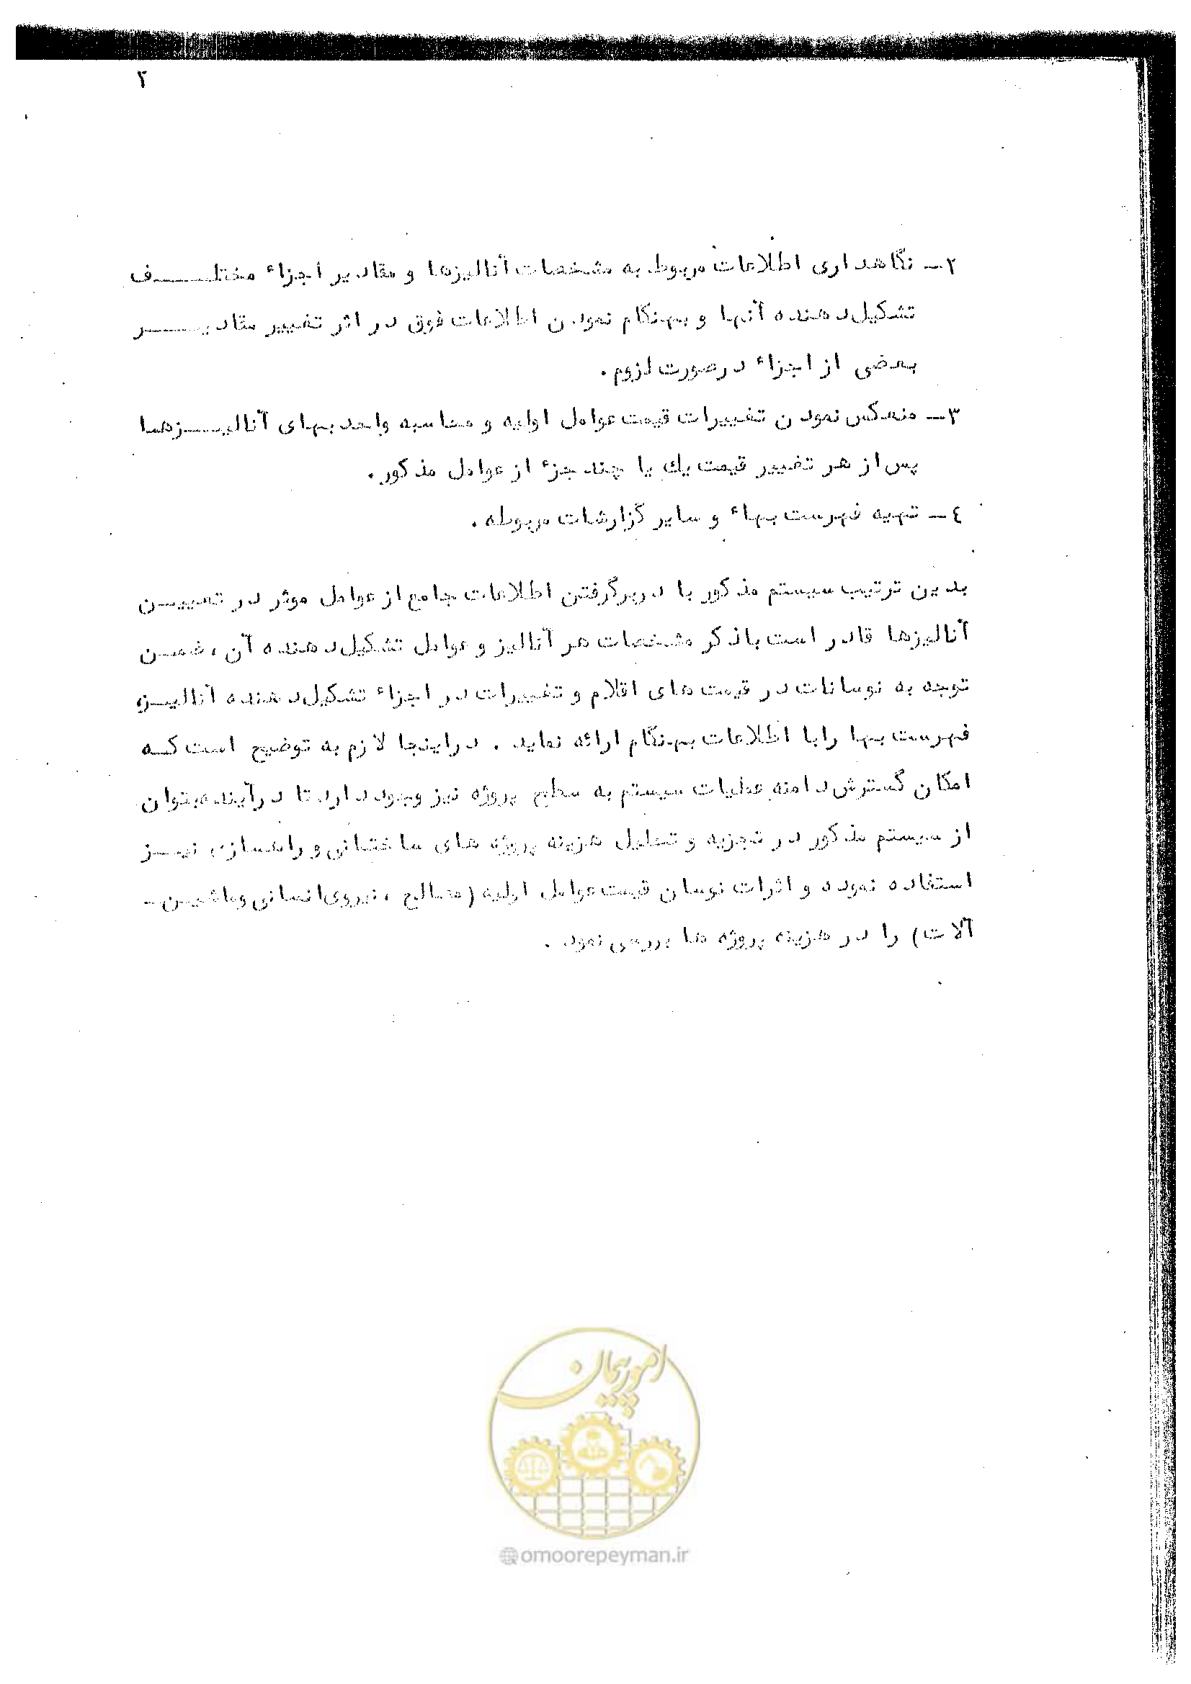 ۲
۲ــ نگاهداری اطلاعات مربوط به مشخصات آنالیزها و مقادیر اجزاء مختلــــــف
تشکیل‌دهنده آنها و بهنگام نمودن اطلاعات فوق در اثر تغییر مقادیــــــر
بعضی از اجزاء درصورت لزوم .
۳ــ منعکس نمودن تغییرات قیمت عوامل اولیه و محاسبه واحد بهای آنالیــــزهــا
پس از هر تغییر قیمت یك یا چند جزء از عوامل مذکور .
٤ــ تهیه فهرست بهاء و سایر گزارشات مربوطه .
بدین ترتیب سیستم مذکور با دربرگرفتن اطلاعات جامع از عوامل موثر در تعییــن
آنالیزها قادر است باذکر مشخصات هر آنالیز و عوامل تشکیل‌دهنده آن ، ضمــن
توجه به نوسانات در قیمت های اقلام و تغییرات در اجزاء تشکیل‌دهنده آنالیــز
فهرست بها رابا اطلاعات بهنگام ارائه نماید . دراینجا لازم به توضیح است کــه
امکان گسترش دامنه عملیات سیستم به سطح پروژه نیز وجود دارد تا درآینده بتوان
از سیستم مذکور در تجزیه و تحلیل هزینه پروژه های ساختمانی و راهسازی نیــز
استفاده نموده و اثرات نوسان قیمت عوامل اولیه (مصالح ، نیروی انسانی وماشیــن ــ
آلات) را در هزینه پروژه ها بررسی نمود .
امور پیمان
@omoorepeyman.ir